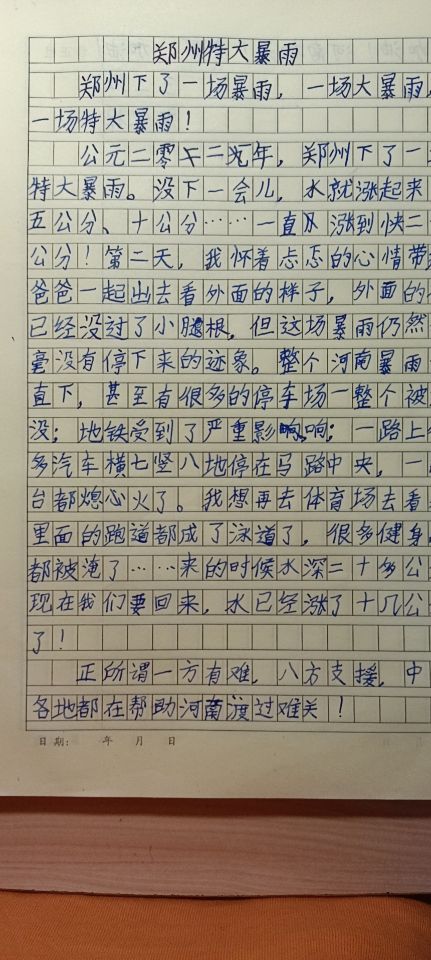 郑州特大暴雨
郑州下了一场暴雨，一场大暴雨，
一场特大暴雨！
公元二零二一年，郑州下了一
特大暴雨。没下一会儿，水就涨起来
五公分、十公分……一直涨到快二
公分！第二天，我怀着忐忑的心情带
爸爸一起出去看外面的样子，外面的
已经没过了小腿根，但这场暴雨仍然
毫没有停下来的迹象。整个河南暴雨
直下，甚至有很多的停车场一整个被
没；地铁受到了严重影响；一路上
多汽车横七竖八地停在马路中央，一
台都熄火了。我想再去体育场去看
里面的跑道都成了泳道了，很多健身
都被淹了……来的时候水深二十多公
现在我们要回来，水已经涨了十几公
了！
正所谓一方有难，八方支援，中
各地都在帮助河南渡过难关！
日期： 年 月 日